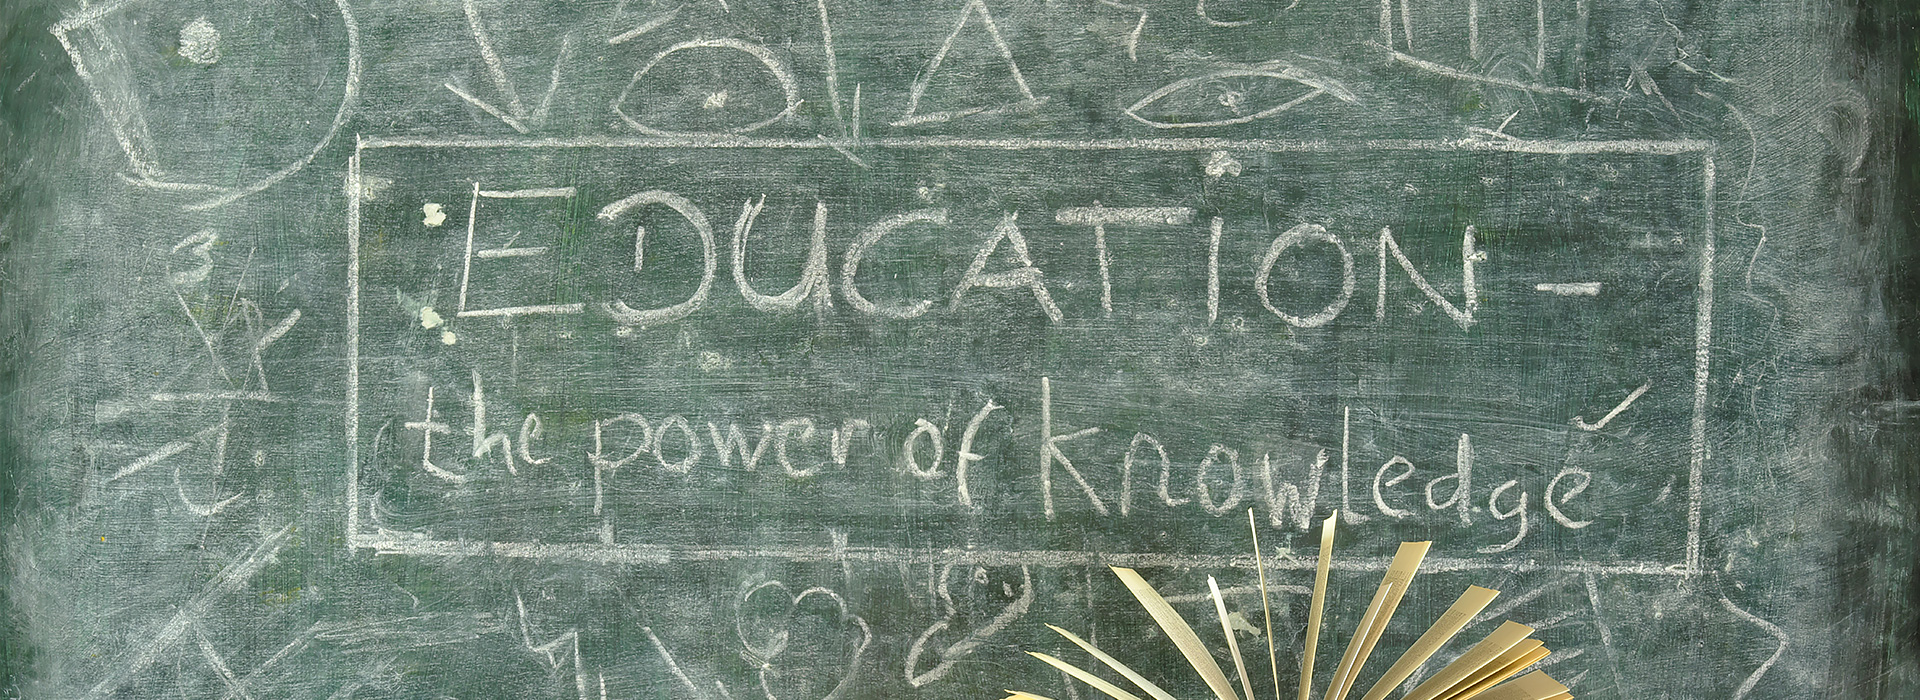 EDUCATION -
the power of knowledge